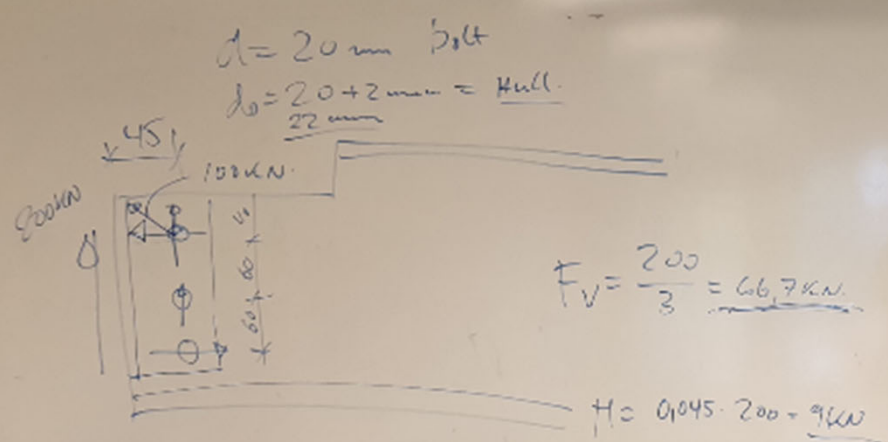 d = 20 mm bolt
d₀ = 20+2 mm = Hull.
22 mm
45
100KN.
200KN
40
60
60
Fv = 200/3 = 66,7KN.
M = 0,045 · 200 = 9KN